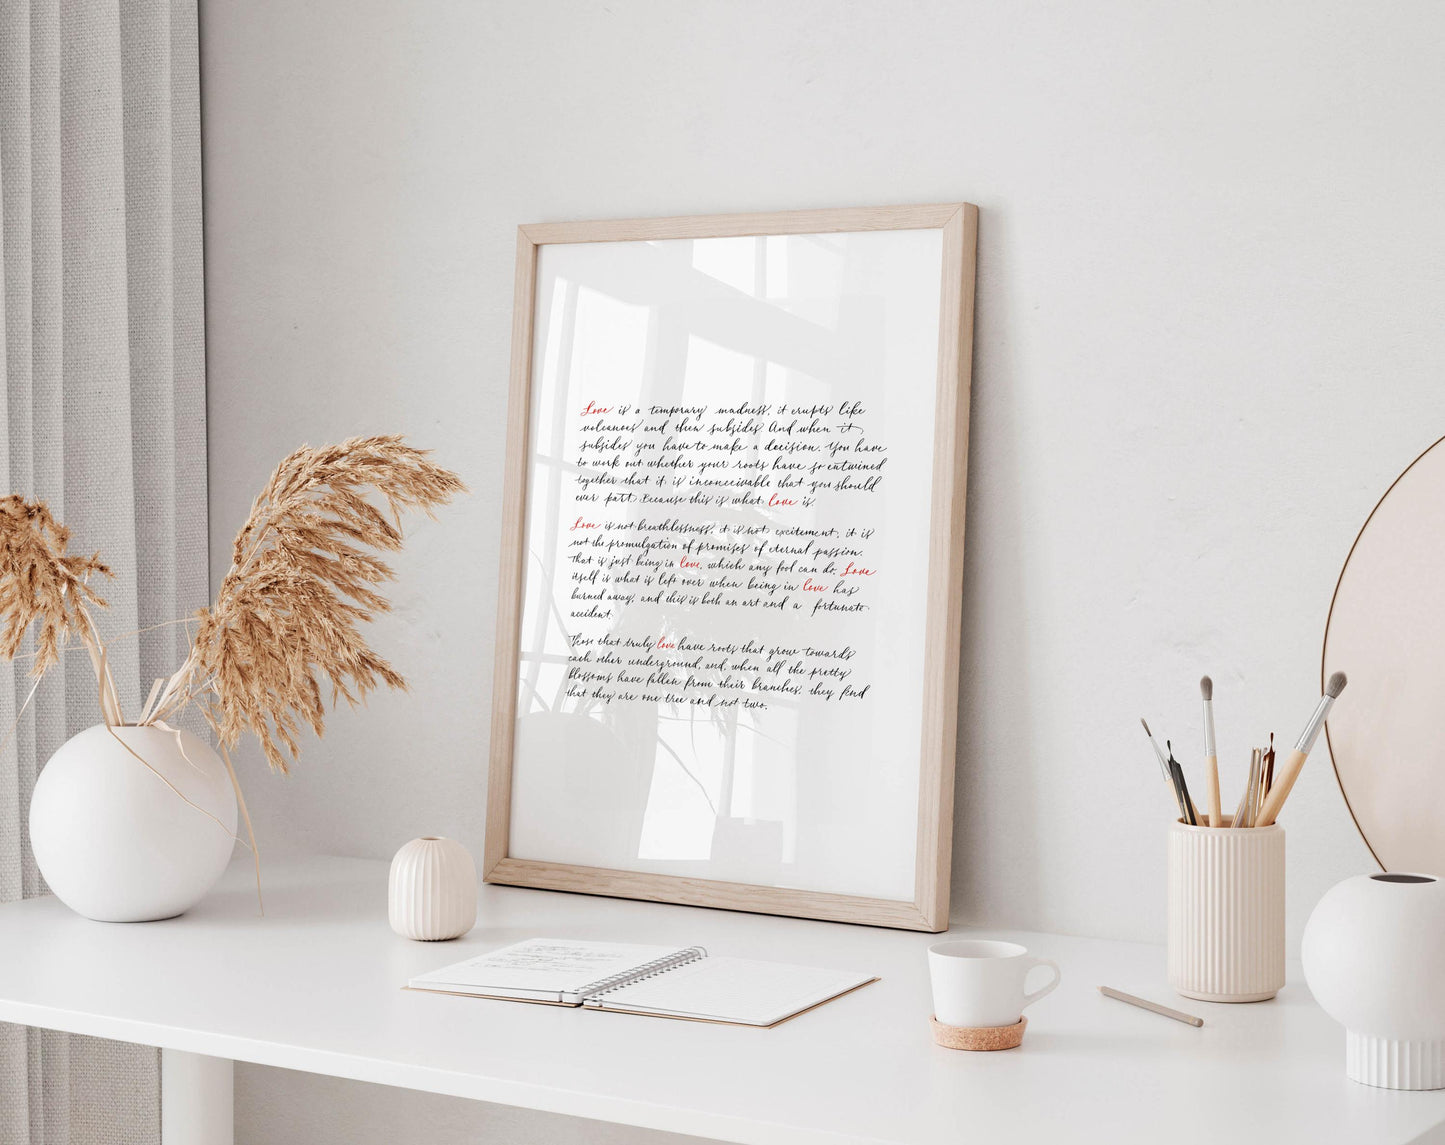 Love is a temporary madness, it erupts like
volcanoes and then subsides. And when it
subsides you have to make a decision. You have
to work out whether your roots have so entwined
together that it is inconceivable that you should
ever part. Because this is what love is.
Love is not breathlessness, it is not excitement, it is
not the promulgation of promises of eternal passion.
That is just being in love, which any fool can do. Love
itself is what is left over when being in love has
burned away, and this is both an art and a fortunate
accident.
Those that truly love have roots that grow towards
each other underground, and, when all the pretty
blossoms have fallen from their branches, they find
that they are one tree and not two.